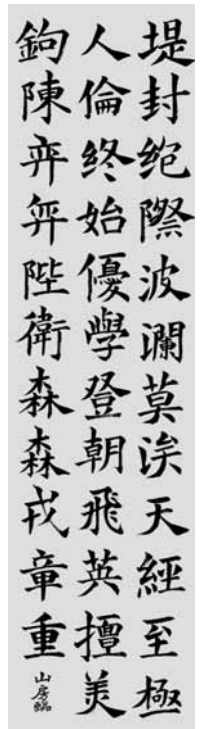 堤封絶際波瀾莫涘天經至極
人倫終始優學登朝飛英擅美
鉤陳弈弈陛衛森森戎章重
山房臨